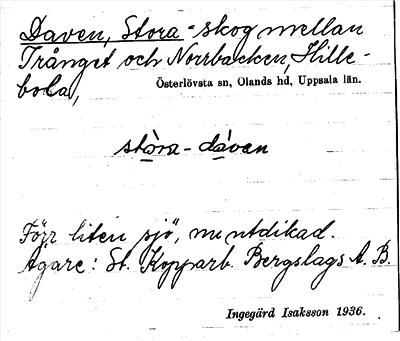 Daven, Stora - skog mellan
Trånget och Norrbacken, Hille-
bola, Österlövsta sn, Olands hd, Uppsala län.
stòra - dáven
Förr liten sjö, nu utdikad.
Ägare: St. Kopparb. Bergslags A. B.
Ingegärd Isaksson 1936.